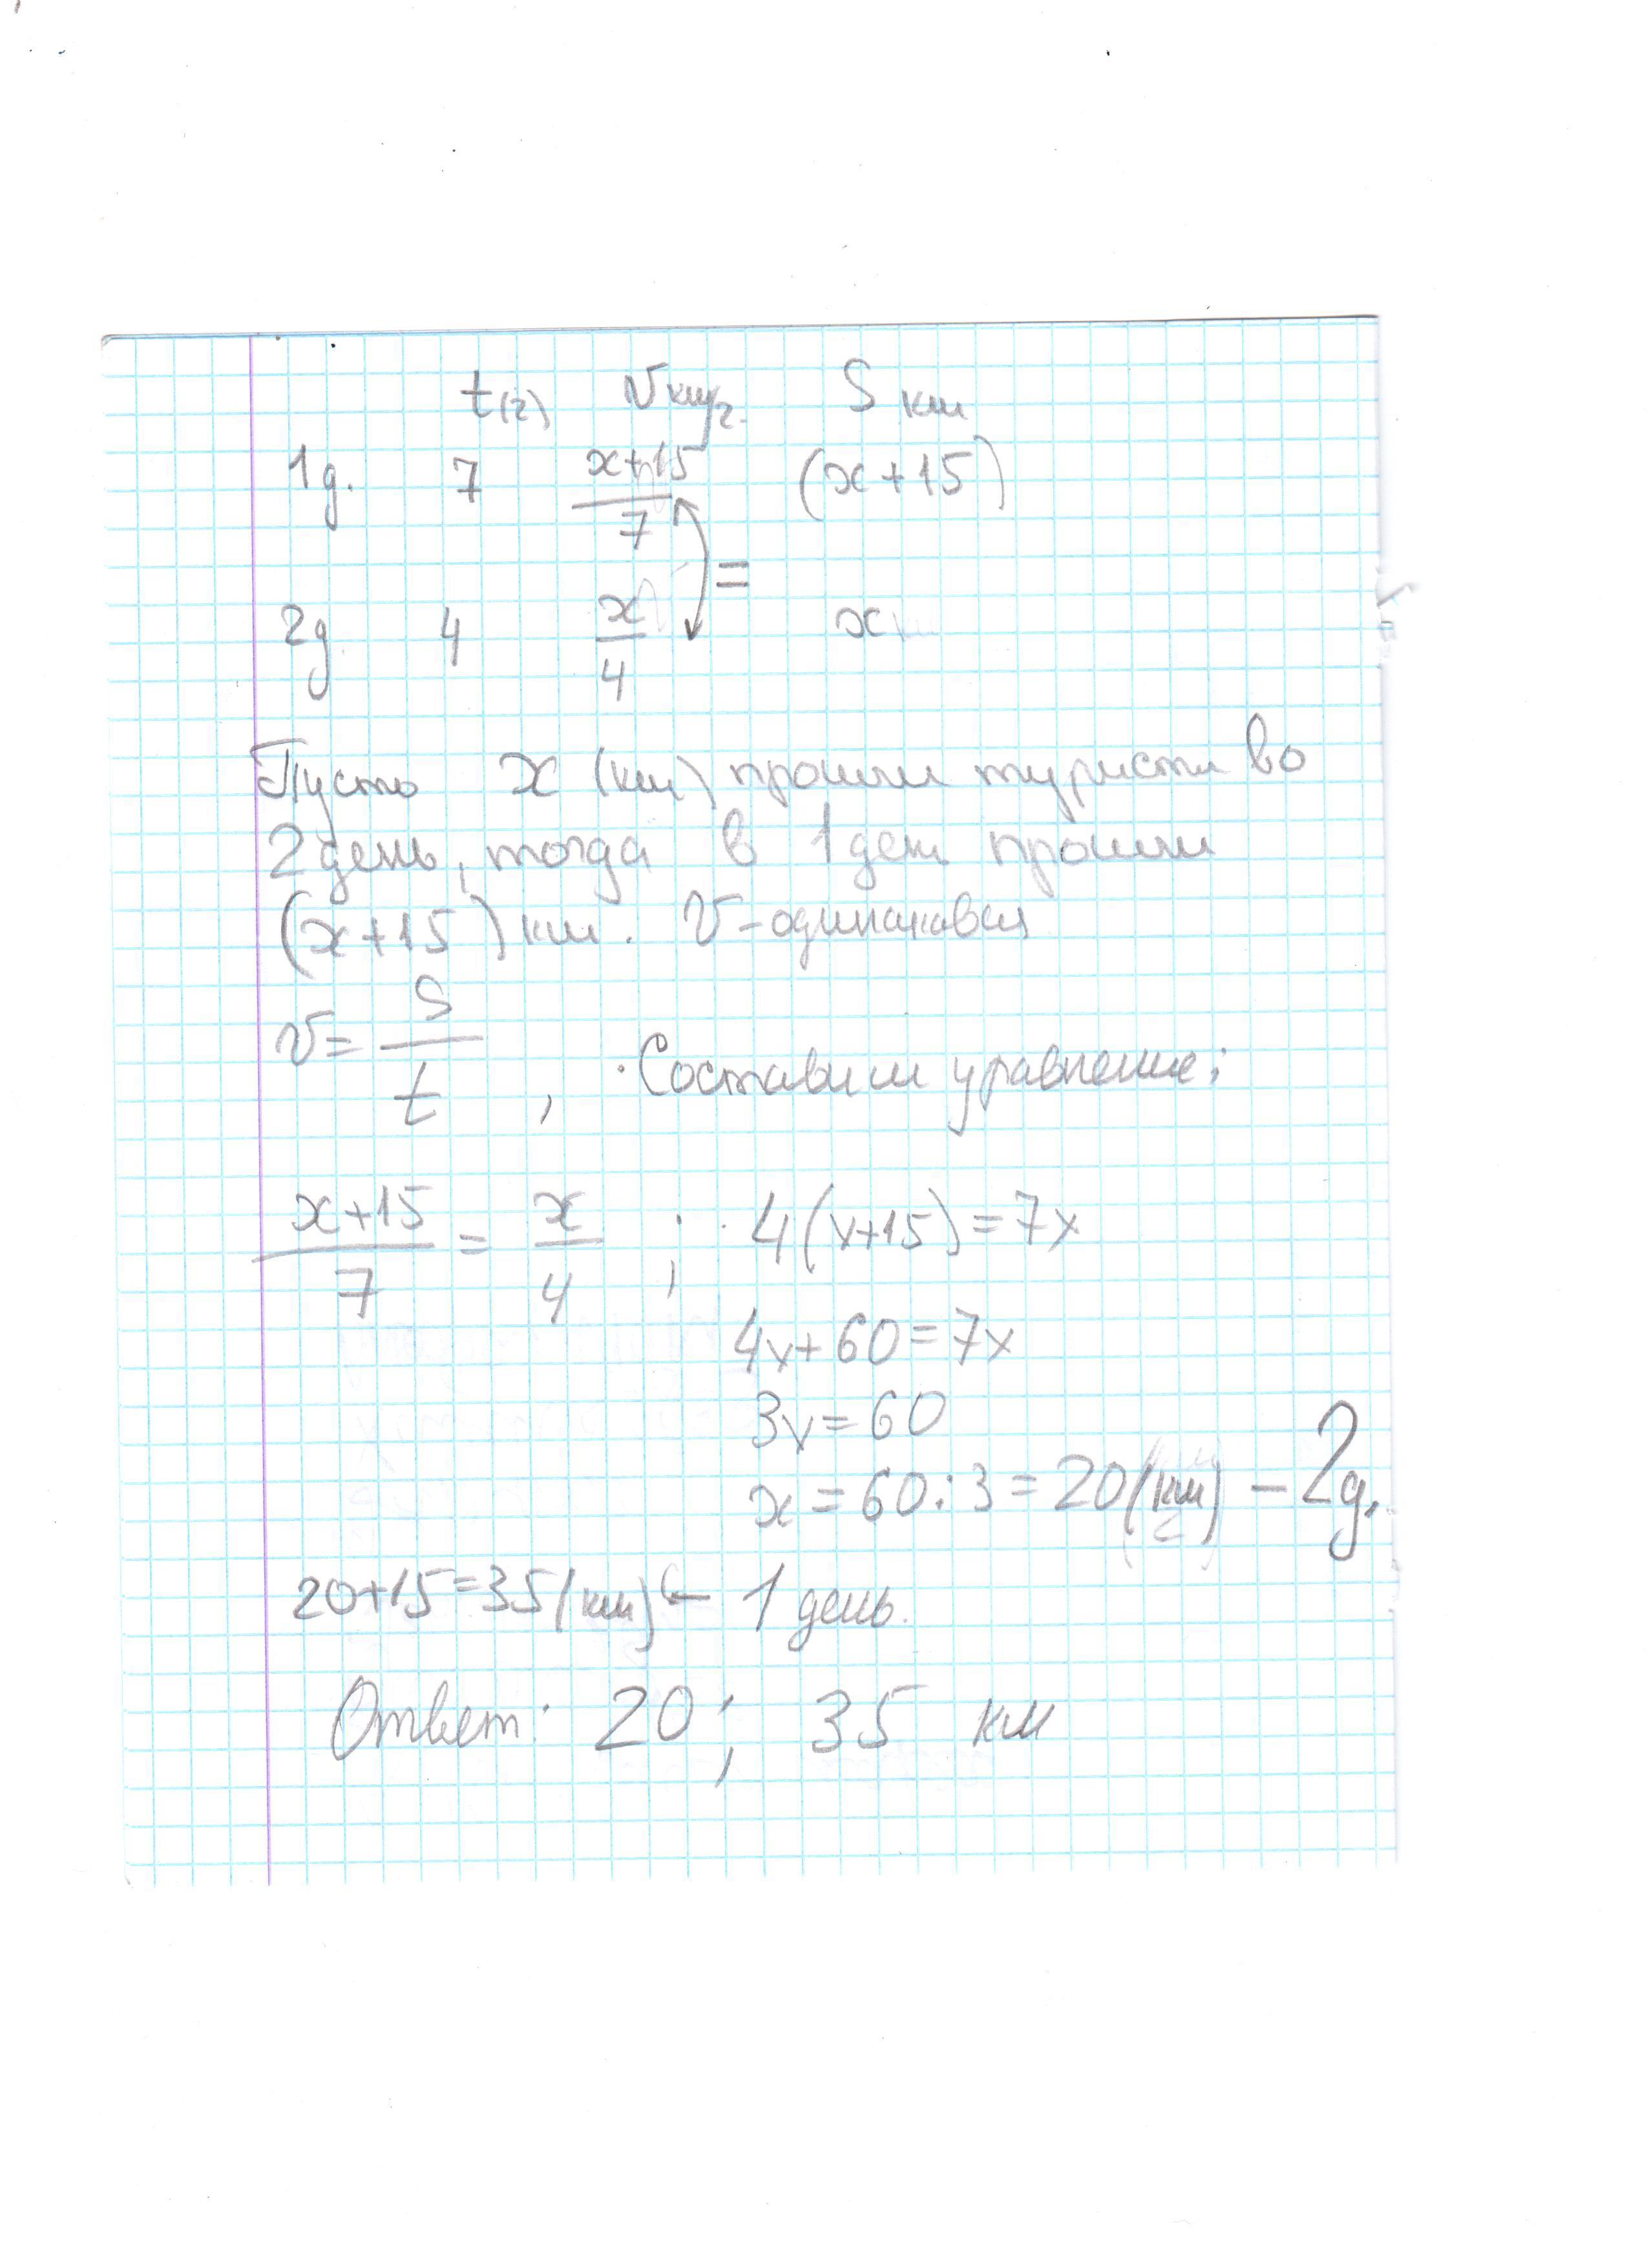 t(г) V км/г. S км
1д. 7 x+15/7 (x+15)
=
2д 4 x/4 x
Пусть x (км) прошли туристи во
2 день, тогда в 1 день прошли
(x+15) км. V - одинаковая
V = S/t , Составим уравнение:
x+15/7 = x/4 ; 4(x+15)=7x
4x+60=7x
3x=60
x=60:3=20(км) – 2д.
20+15=35(км) ← 1 день.
Ответ: 20; 35 км